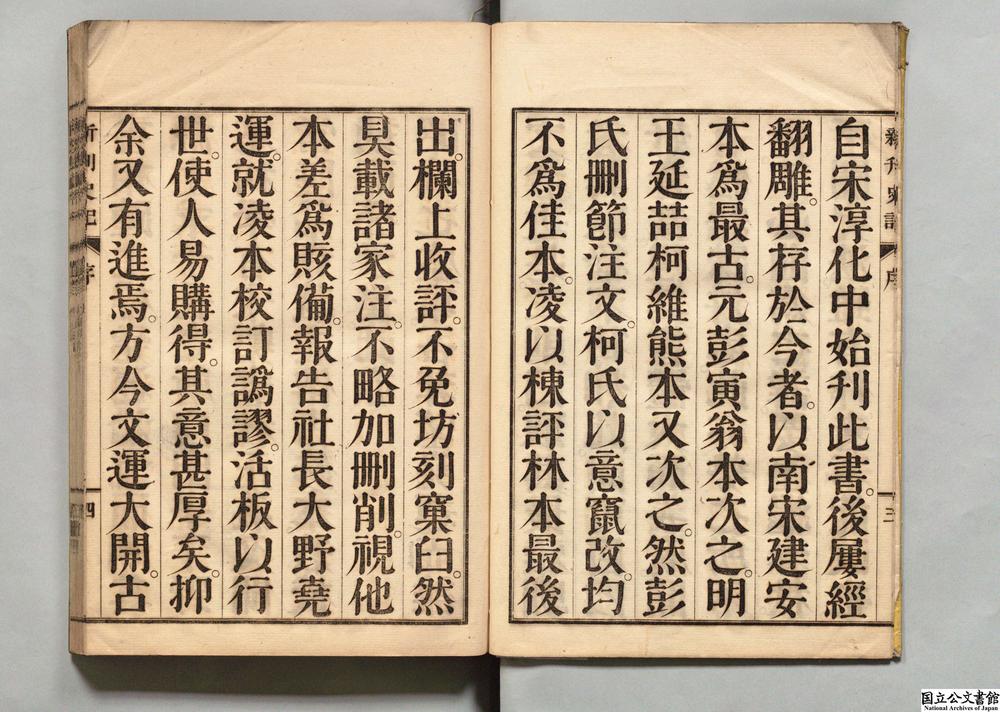 自宋淳化中始刊此書。後屢經
翻雕。其存於今者。以南宋建安
本爲最古。元彭寅翁本次之。明
王延喆柯維熊本又次之。然彭
氏删節注文。柯氏以意竄改。均
不爲佳本。凌以棟評林本最後
出。欄上收評。不免坊刻窠臼。然
具載諸家注。不略加删削。視他
本差爲賅備。報告社長大野堯
運。就凌本校訂譌謬。活板以行
世。使人易購得。其意甚厚矣。抑
余又有進焉。方今文運大開。古
序
三
序
四
国立公文書館
National Archives of Japan